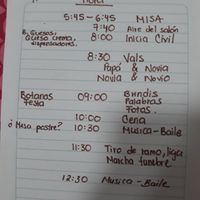 Hora
5:45 - 6:45 MISA
7:40 Aire del salón
B. Quesos: 8:00 Inicia Civil
Queso crema,
dispensadores.
8:30 Vals
Papá & Novia
Novia & Novio
Botanas 09:00 Brindis
Fiesta Palabras
Fotos.
10:00 Cena
¿Mesa postre? 10:30 Musica - Baile
11:30 Tiro de ramo, liga
Marcha funebre
12:30 Musica - Baile